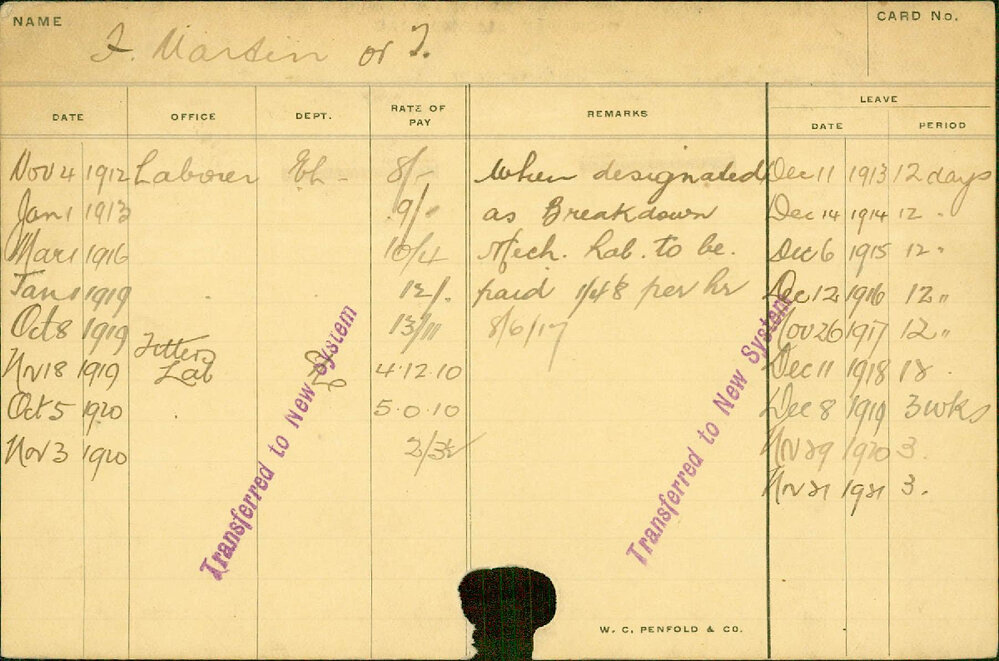 NAME
F. Martin or J.
CARD No.
DATE OFFICE DEPT. RATE OF PAY REMARKS LEAVE
DATE PERIOD
Nov 4 1912 Laborer Eh - 8/- When designated Dec 11 1913 12 days
Jan 1 1913 9/- as Breakdown Dec 14 1914 12 "
Mar 1 1916 10/4 Mech. Lab. to be. Dec 6 1915 12 "
Jan 1 1919 12/. paid 1/48 per hr Dec 12 1916 12 "
Oct 8 1919 13/11 8/6/17 Nov 26 1917 12 "
Fitters
Nov 18 1919 Lab Do 4.12.10 Dec 11 1918 18 .
Oct 5 1920 5.0.10 Dec 8 1919 3 wks
Nov 3 1920 2/3½ Nov 29 1920 3.
Nov 21 1921 3.
Transferred to New System
Transferred to New System
W. C. PENFOLD & CO.